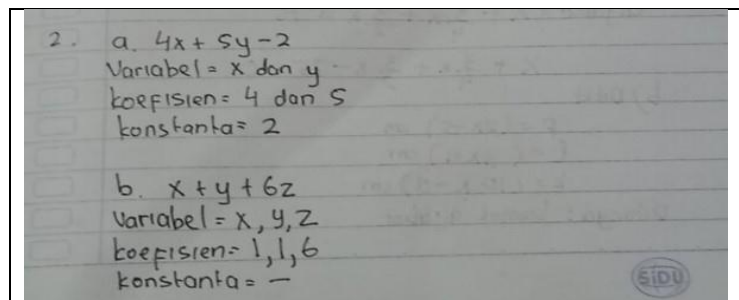 2. a. 4x + 5y - 2
Variabel = x dan y
koefisien = 4 dan 5
konstanta = 2
b. x + y + 6z
Variabel = x, y, z
koefisien = 1, 1, 6
konstanta = —
SiDU